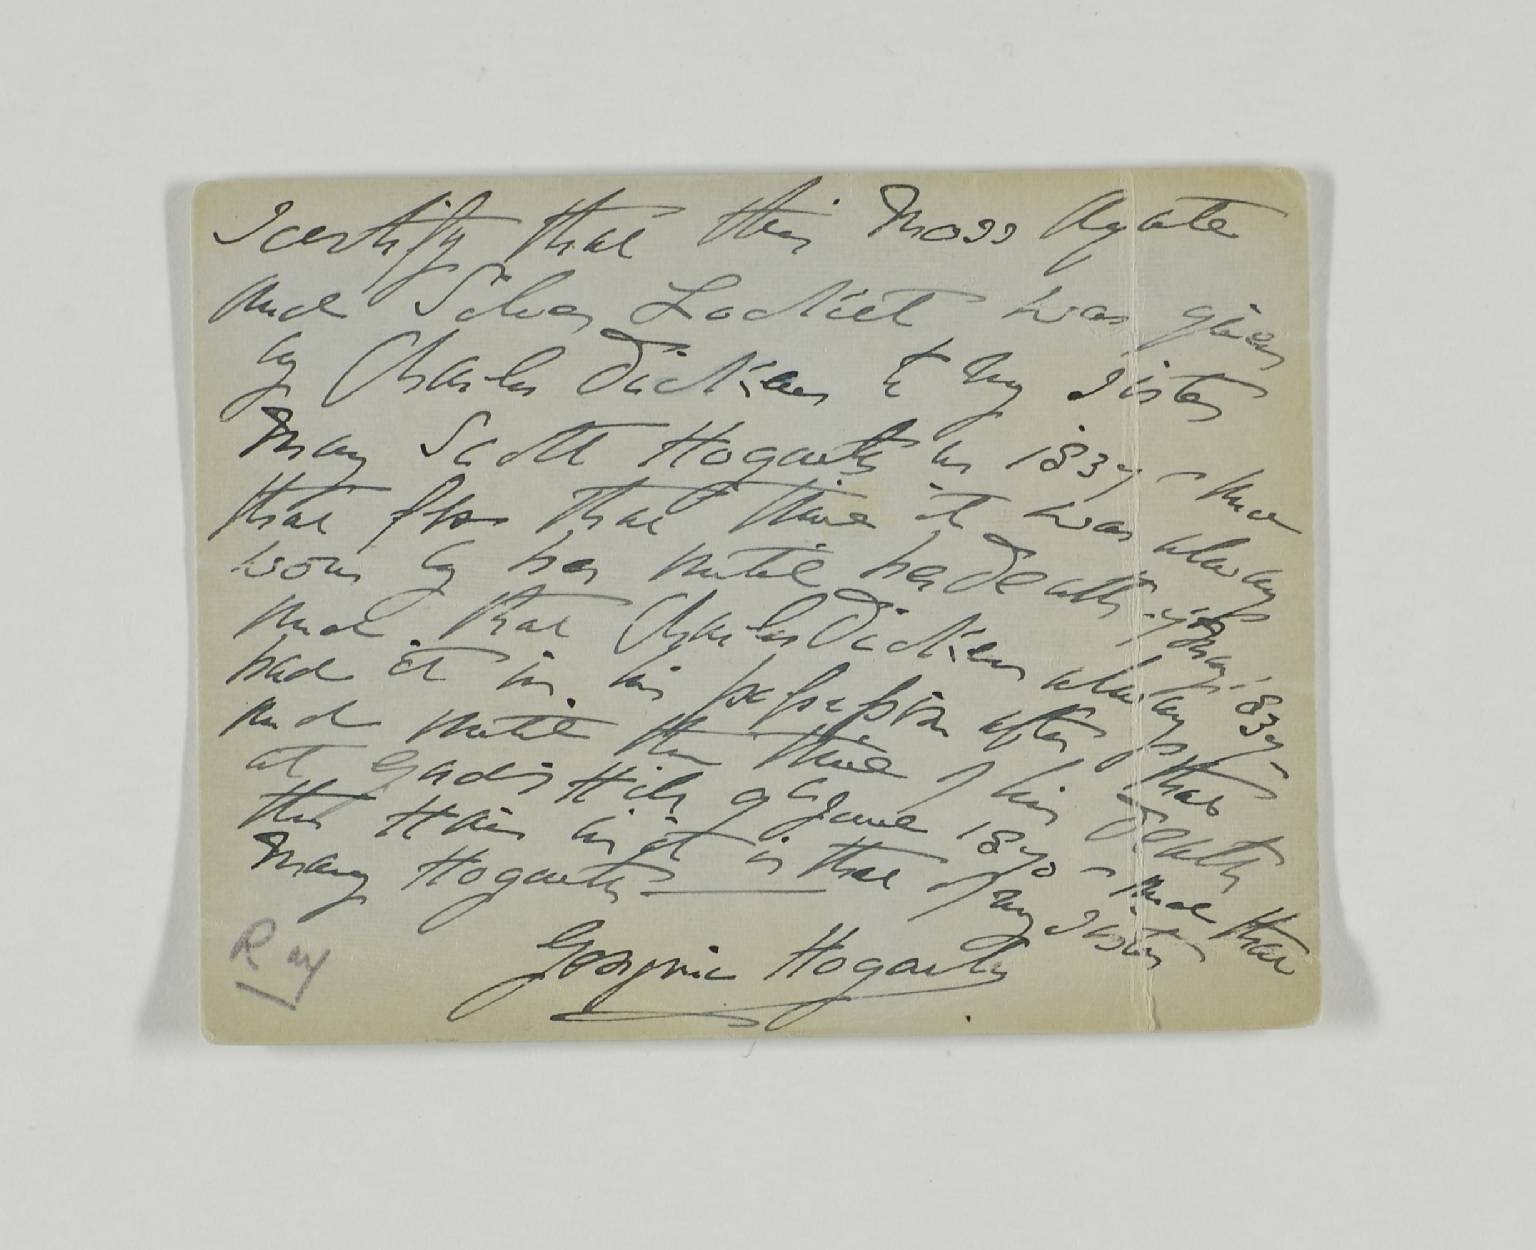 I certify that this Moss Agate
and Silver Locket was given
by Charles Dickens to my Sister
Mary Scott Hogarth in 1837 - and
that from that time it was always
worn by her until her Death - 7 May 1837 -
and that Charles Dickens always
had it in his possession after that
and until the time of his Death
at Gadshill 9 of June 1870 - and that
the Hair in it is that of my Sister
Mary Hogarth
Georgina Hogarth
Ray